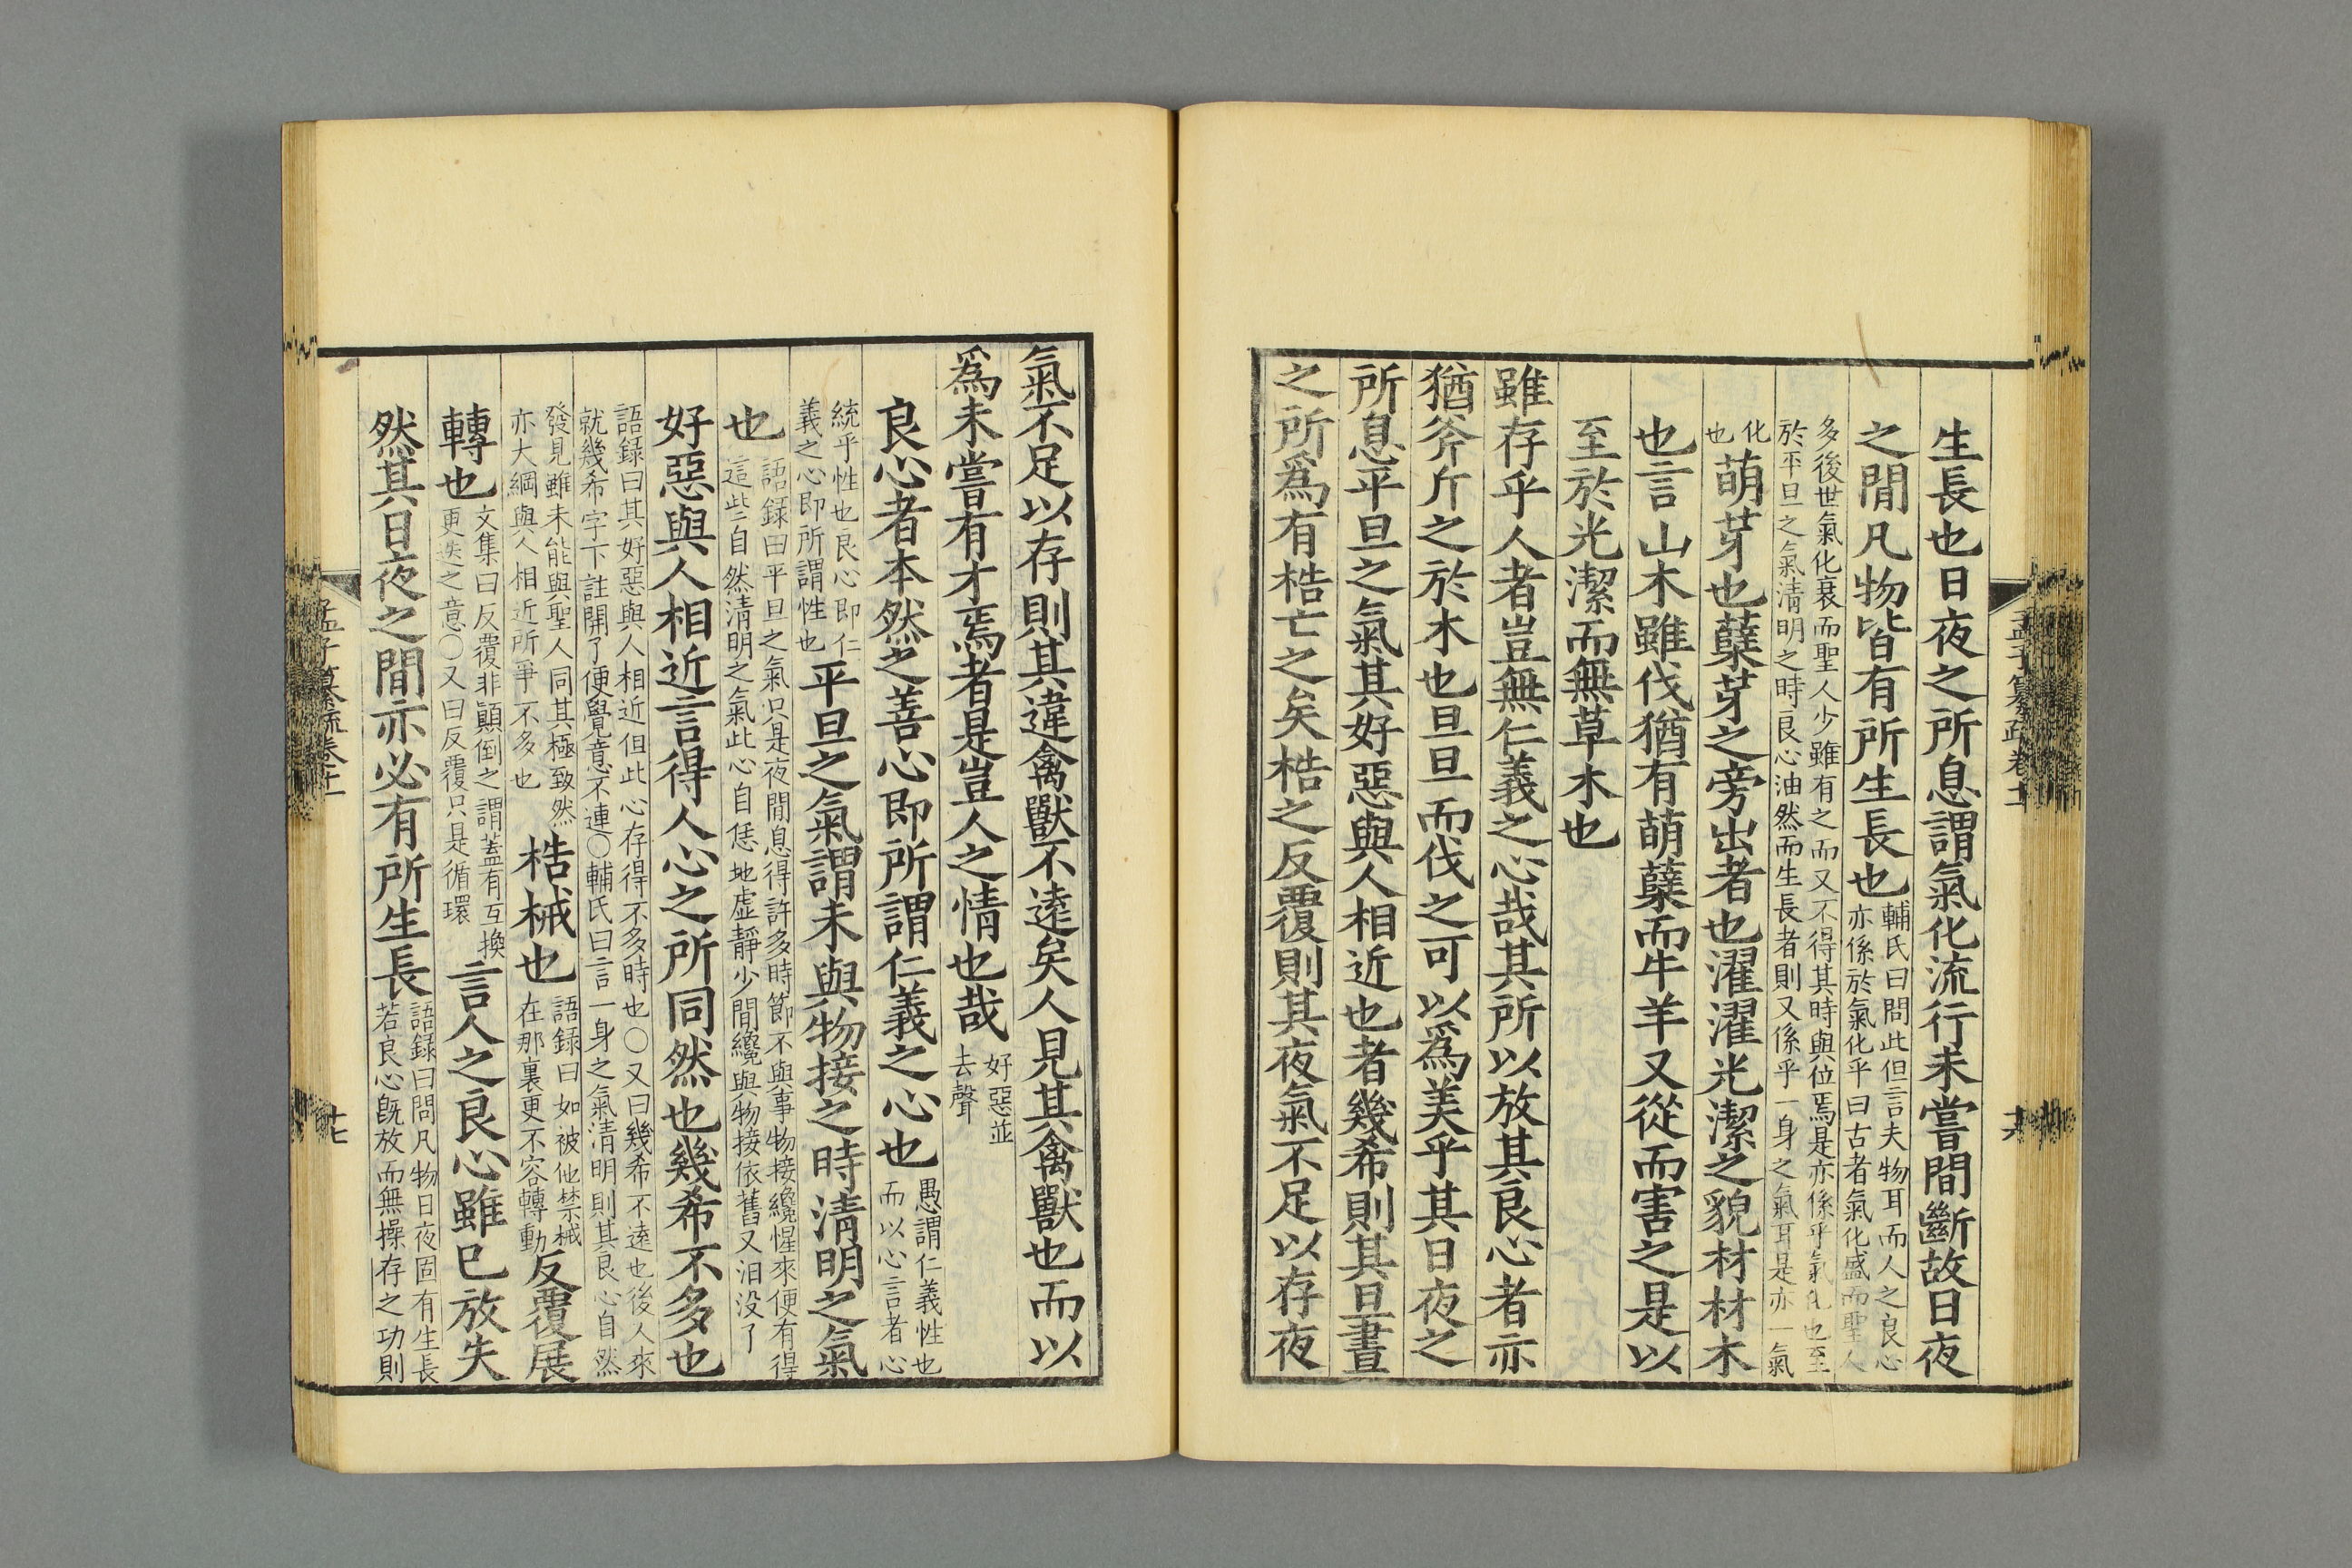 生長也日夜之所息謂氣化流行未嘗間斷故日夜
之閒凡物皆有所生長也
輔氏曰問此但言夫物耳而人之良心
亦係於氣化乎曰古者氣化盛而聖人
多後世氣化衰而聖人少雖有之而又不得其時與位焉是亦係乎氣化也至
於平旦之氣清明之時良心油然而生長者則又係乎一身之氣耳是亦一氣
化
也
萌芽也蘖芽之旁出者也濯濯光潔之貌材材木
也言山木雖伐猶有萌蘖而牛羊又從而害之是以
至於光潔而無草木也
雖存乎人者豈無仁義之心哉其所以放其良心者亦
猶斧斤之於木也旦旦而伐之可以爲美乎其日夜之
所息平旦之氣其好惡與人相近也者幾希則其旦晝
之所爲有梏亡之矣梏之反覆則其夜氣不足以存夜
氣不足以存則其違禽獸不遠矣人見其禽獸也而以
爲未嘗有才焉者是豈人之情也哉
好惡並
去聲
良心者本然之善心即所謂仁義之心也
愚謂仁義性也
而以心言者心
統乎性也良心即仁
義之心即所謂性也
平旦之氣謂未與物接之時清明之氣
也
語録曰平旦之氣只是夜間息得許多時節不與事物接纔惺來便有得
這些自然清明之氣此心自恁地虛靜少間纔與物接依舊又汩没了
好惡與人相近言得人心之所同然也幾希不多也
語録曰其好惡與人相近但此心存得不多時也〇又曰幾希不遠也後人來
就幾希字下註開了便覺意不連〇輔氏曰言一身之氣清明則其良心自然
發見雖未能與聖人同其極致然
亦大綱與人相近所爭不多也
梏械也
語録曰如被他禁械
在那裏更不容轉動
反覆展
轉也
文集曰反覆非顛倒之謂蓋有互換
更迭之意〇又曰反覆只是循環
言人之良心雖已放失
然其日夜之間亦必有所生長
語録曰問凡物日夜固有生長
若良心旣放而無操存之功則
孟子纂疏卷十一